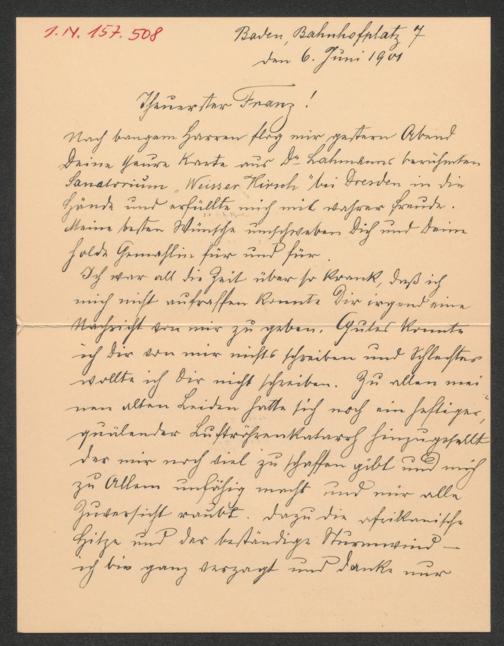 I.N. 157.508
Baden, Bahnhofplatz 7
den 6. Juni 1901
Theuerster Franz!
Nach bangem Harren flog mir gestern Abend
Deine theure Karte aus Dr Lahmanns berühmten
Sanatorium „Weisser Hirsch" bei Dresden in die
Hände und erfüllte mich mit wahrer Freude.
Meine besten Wünsche umschweben Dich und Deine
holde Gemahlin für und für.
Ich war all die Zeit über so krank, daß ich
mich nicht aufraffen konnte Dir irgend eine
Nachricht von mir zu geben. Gutes konnte
ich Dir von mir nichts schreiben und Schlechtes
wollte ich Dir nicht schreiben. Zu allen mei
nen alten Leiden hatte sich noch ein heftiger,
quälender Luftröhrenkatarrh hinzugesellt
der mir noch viel zu schaffen gibt und mich
zu Allem unfähig macht und mir alle
Zuversicht raubt. Dazu die afrikanische
Hitze und der beständige Sturmwind –
ich bin ganz verzagt und danke nur